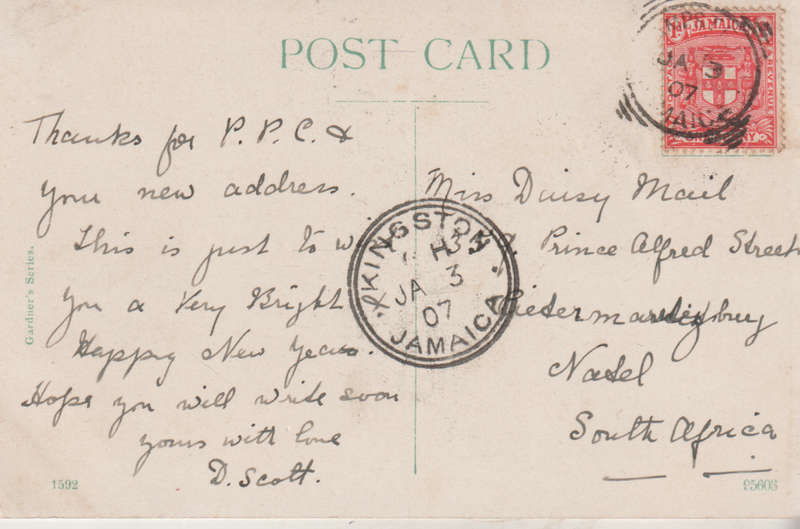 POST CARD
JAMAICA
REVENUE
JA 3
07
Thanks for P.P.C. &
your new address.
This is just to wi
you a Very Bright
Happy New Year.
Hope you will write soon
yours with love
D. Scott.
KINGSTON
JA 3
07
JAMAICA
Miss Daisy Mail
Prince Alfred Street
Pietermaritzburg
Natel
South Africa
Gardner's Series.
1592